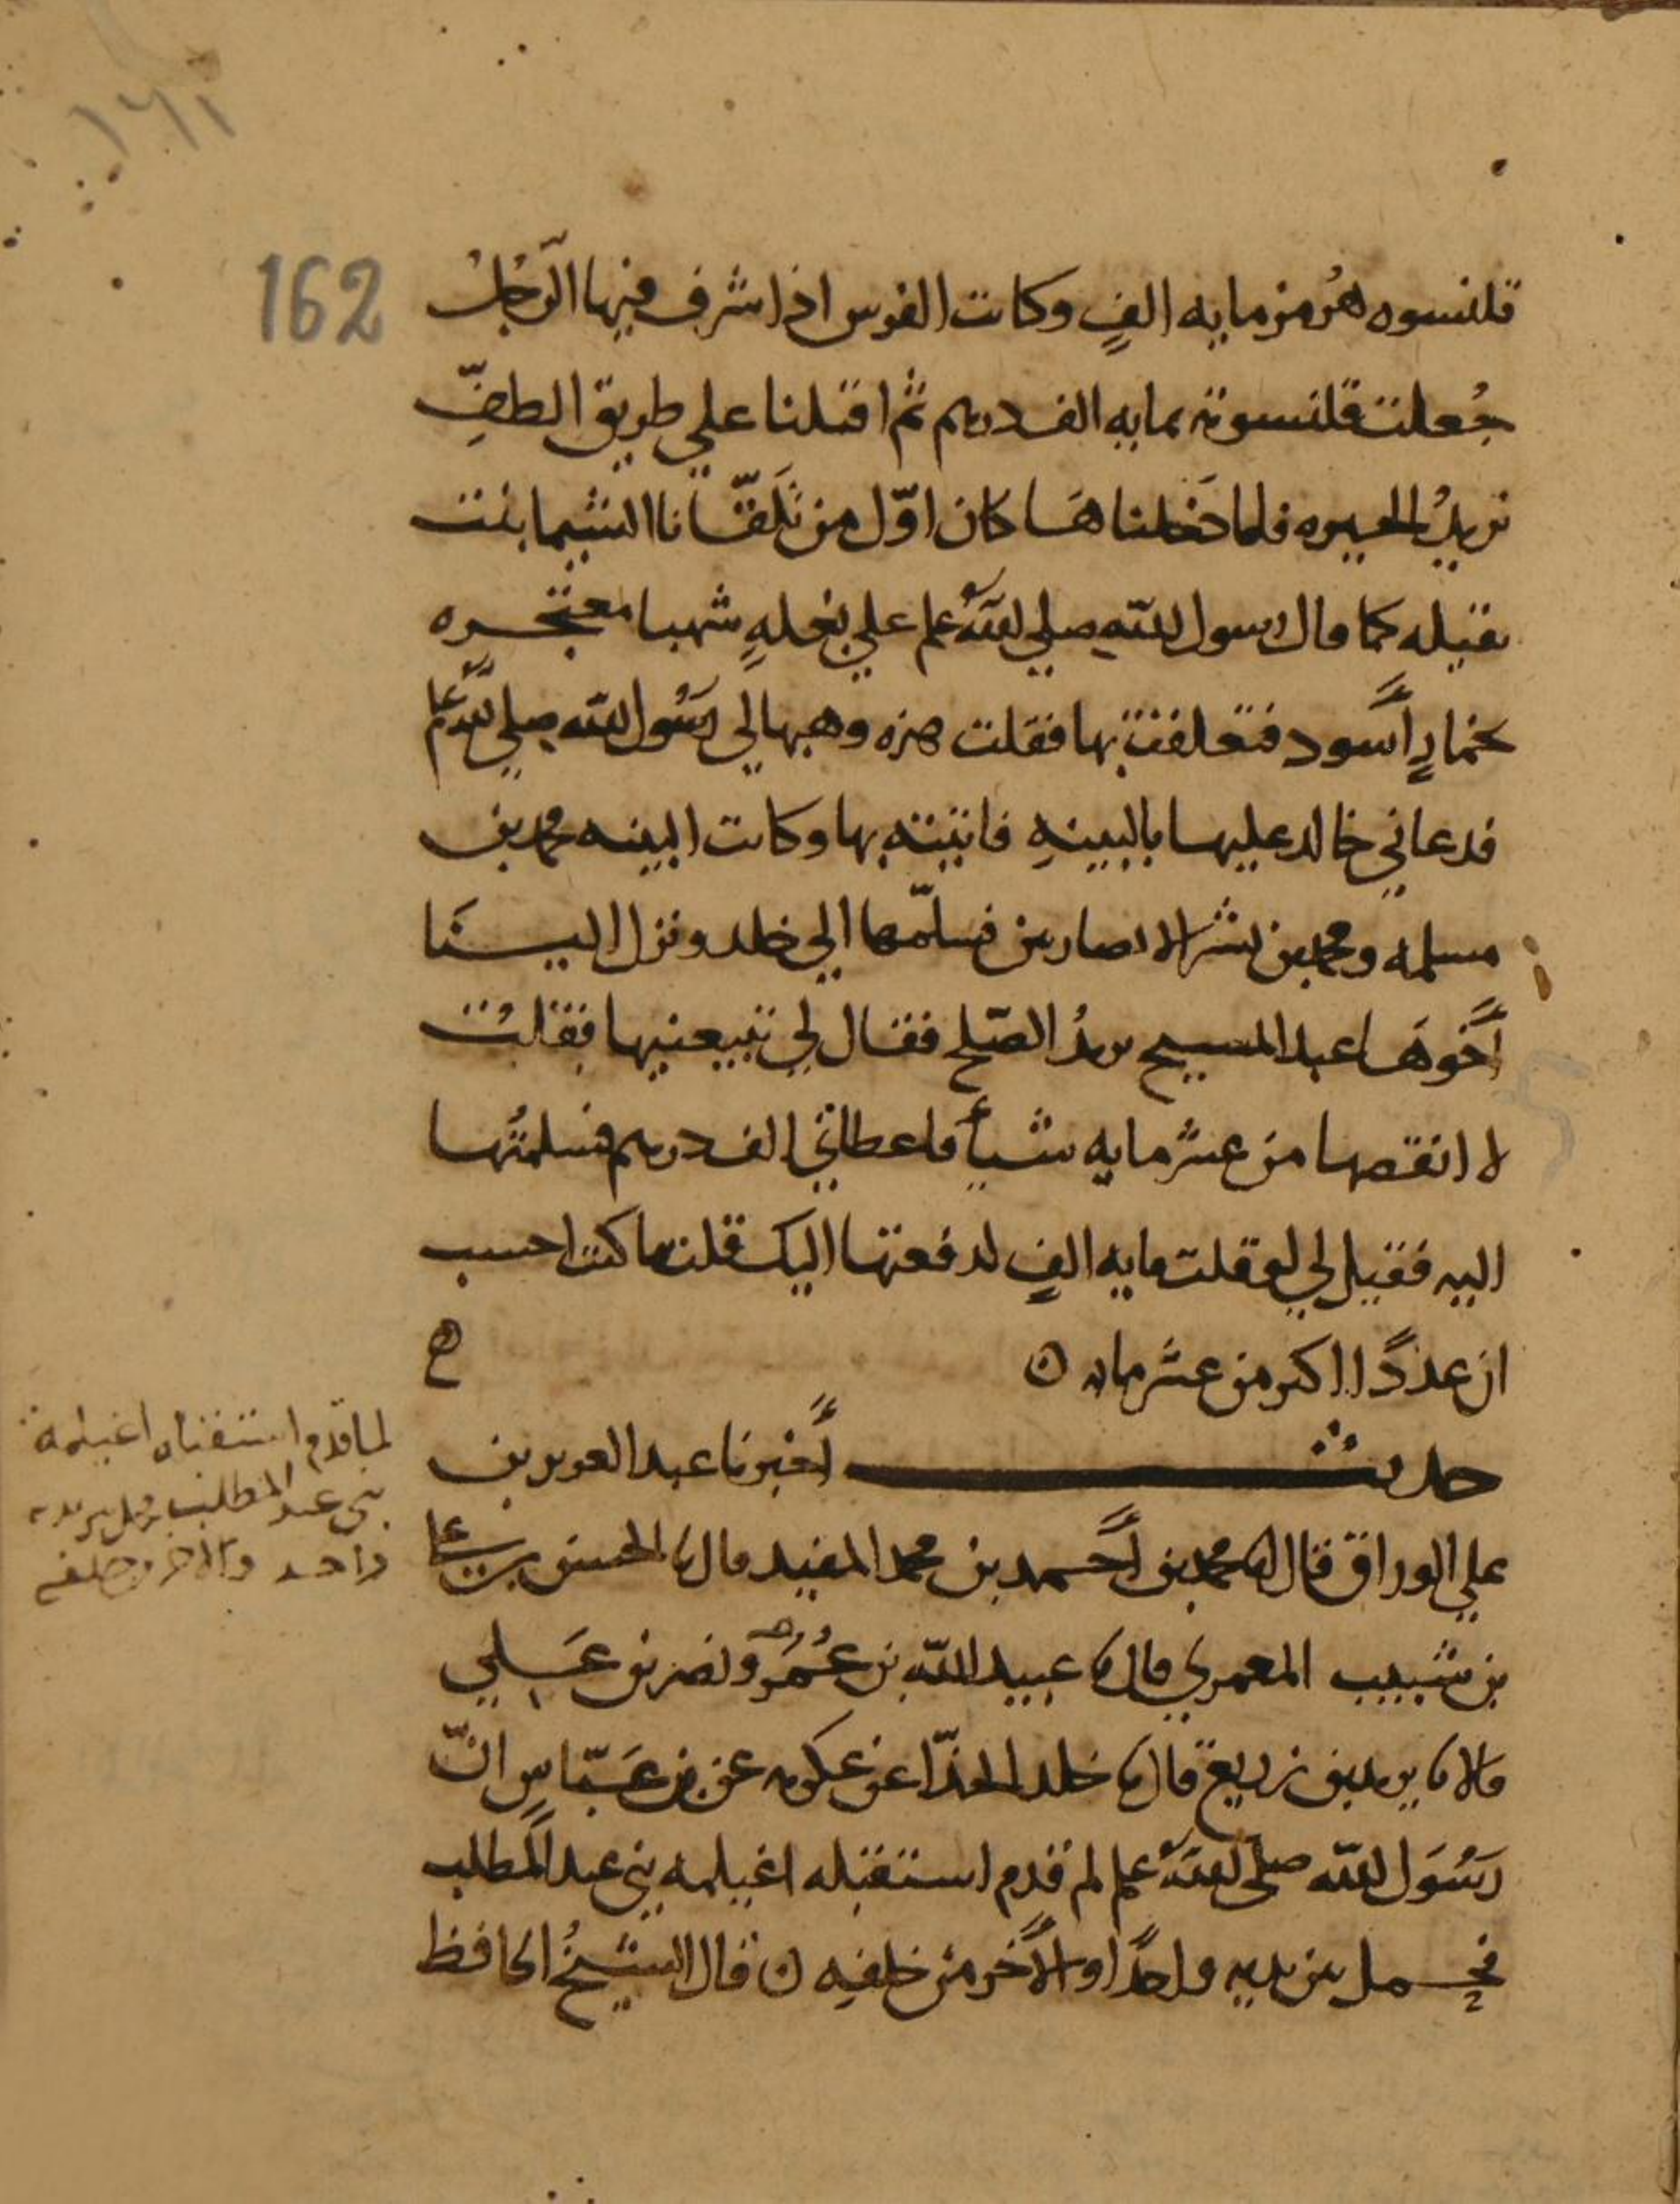 ١٦١
162
قلنسوه هُرمز مايه الفٍ وكانت الفرس اذا شرف فيها الرَّجلُ
جُعلت قلنسوته بمايه الف درهم ثم اقبلنا علي طريق الطفِّ
نريدُ الحيره فلما دَخلناهَا كان اوّل من تَلقّانا الشيما بنت
بقيله كما قال رسول الله صلي الله علم علي بغلهٍ شهبا معتجره
بخمارٍ أسود فتعلقت بها فقلت هذه وهبها لي رَسُول الله صلي الله علم
فدعاني خالد عليها بالبينهِ فاتيته بها وكانت البينه محمد بن
مسلمه ومحمد بن بشر الانصاريين فسلّمها الي خلد ونزل الينَا
أخوهَا عبد المسيح يريدُ الصّلح فقال لي تبيعنيها فقلتُ
لا انقصها من عشر مايه شيأ فاعطاني الف درهم فسلمتُها
اليه فقيل لي لو قلت مايه الفٍ لدفعتها اليك قلت ما كنت احسب
ان عددًا اكثر من عشر مايه ن
حديث أخبرنا عبد العزيز بن
علي الوراق قال محمد بن أحمد بن محمد المفيد قال الحسن بن علي
بن شبيب المعمري قال عبيد الله بن عُمَر ونصر بن عَلي
قالا يزيد بن زريع قال خلد الحذّا عن عكرمه عن بن عَبّاسٍ انّ
رَسُول الله صلي الله علم لم قدم استقبله اغيلمه بني عبد المطلب
فحمل بين يديه واحدًا والأخر من خلفهِ ن قال الشيخُ الحافظ
لما قدم استقبله اغيلمة
بني عبد المطلب فحمل بين يديه
واحد والاخر خلفه